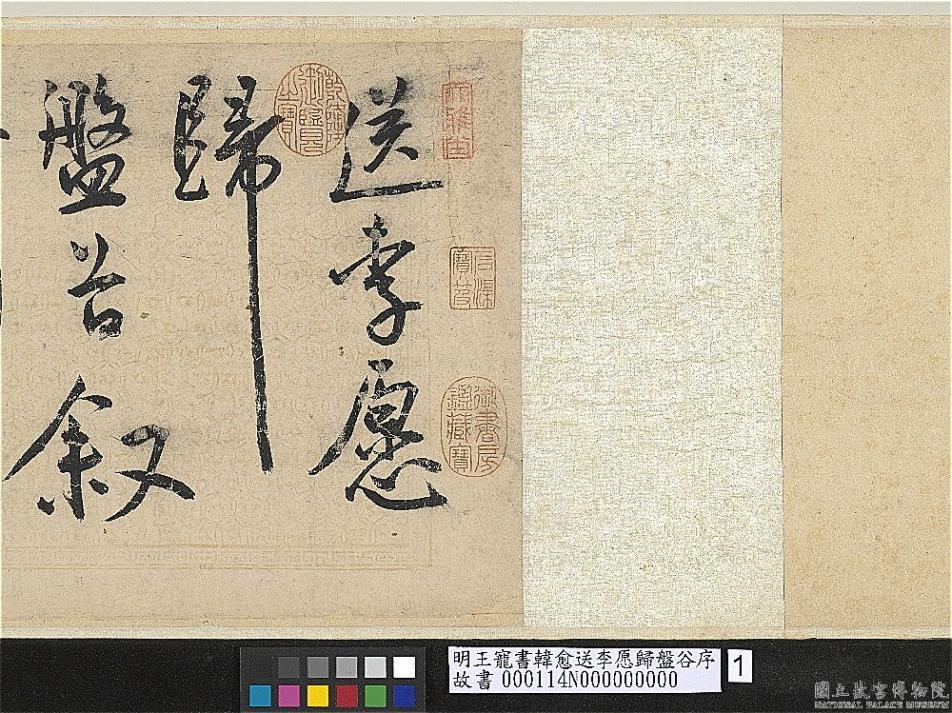 送李愿
歸
盤谷叙
御書房鑑藏寶
明王寵書韓愈送李愿歸盤谷序
故書 000114N000000000
1
國立故宮博物院
NATIONAL PALACE MUSEUM